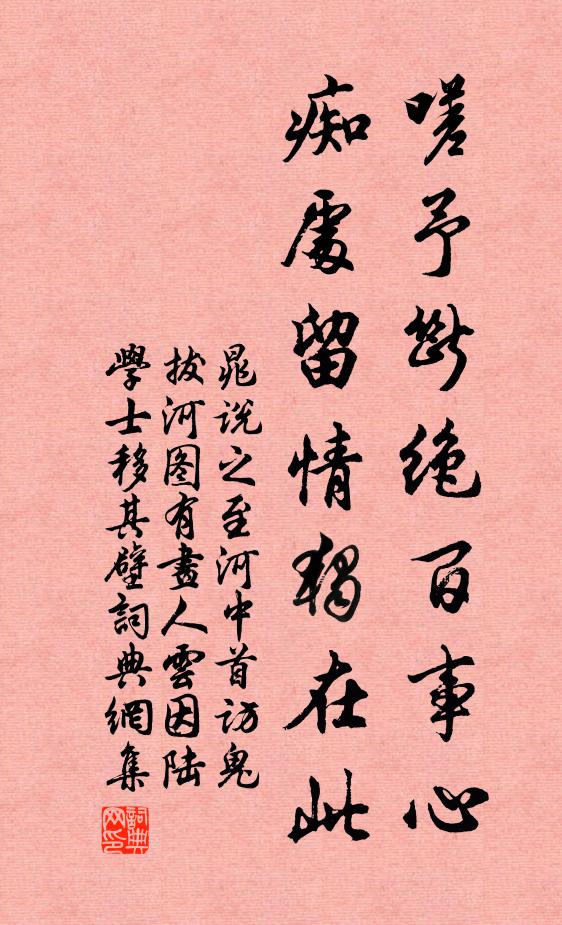 嗟予斷絕百事心
痴處留情獨在此
晁說之至河中首訪鬼
拔河图有畫人雲因陆
學士移其壁詞典網集
詞典网印